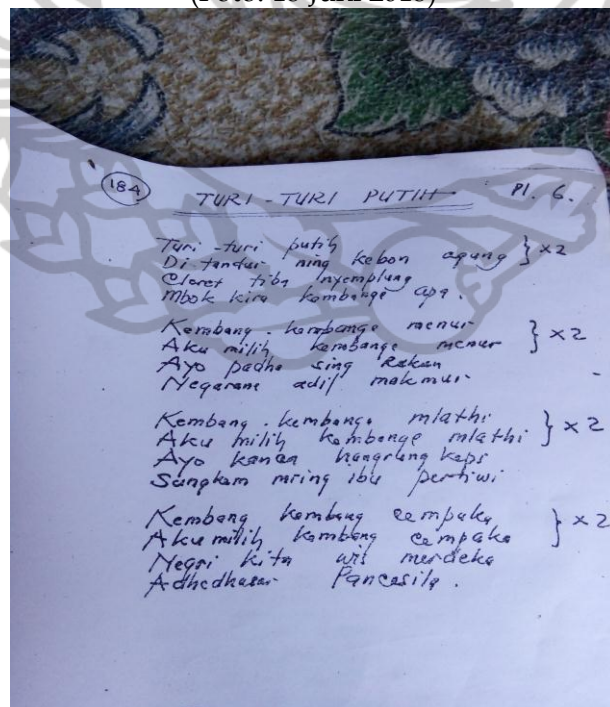 (Foto: 10 Juni 2018)
184
TURI-TURI PUTIH Pl. 6.
Turi-turi putih
Di tandur ning kebon agung } x2
Cleret tiba nyemplung
Mbok kira kembange apa.
Kembang-kembange menur
Aku milih kembange menur } x2
Ayo padha sing
Negarane adil makmur
Kembang-kembange mlathi
Aku milih kembange mlathi } x2
Ayo kanca
Sungkem mring ibu pertiwi
Kembang kembang cempaka
Aku milih kembang cempaka } x2
Negri kita wis merdeka
Adhedhasar Pancasila.